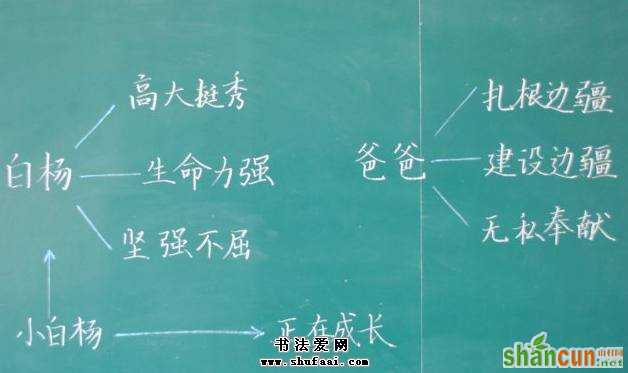 高大挺秀
白杨
生命力强
坚强不屈
小白杨
正在成长
爸爸
扎根边疆
建设边疆
无私奉献
书法爱网
www.shufaai.com
shancun
山村网
.net